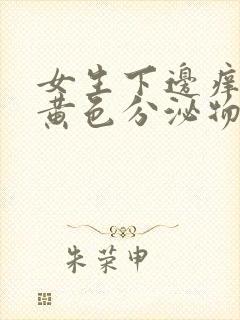 女生下邊癢
黃色分泌物
朱荣申